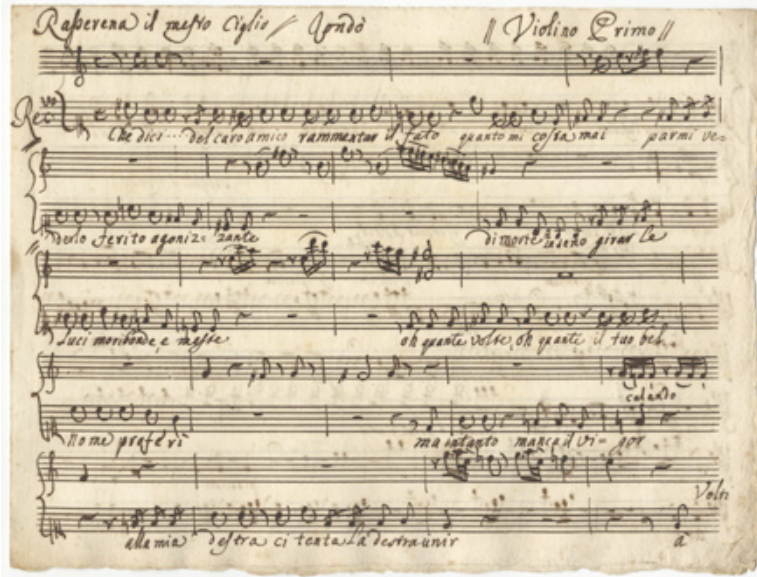 Rasserena il mesto Ciglio // Rondò // Violino Primo //
Rec.vo
Che dici... del caro amico rammentar il fato quanto mi costa mai parmi ve=
derlo ferito agoniz= zante di morte in seno girar le
luci moribonde, e meste oh quante volte, oh quante il tuo bel
calando
nome proferì ma intanto manca il vi= gor
Volti
alla mia destra ci tenta la destra unir a